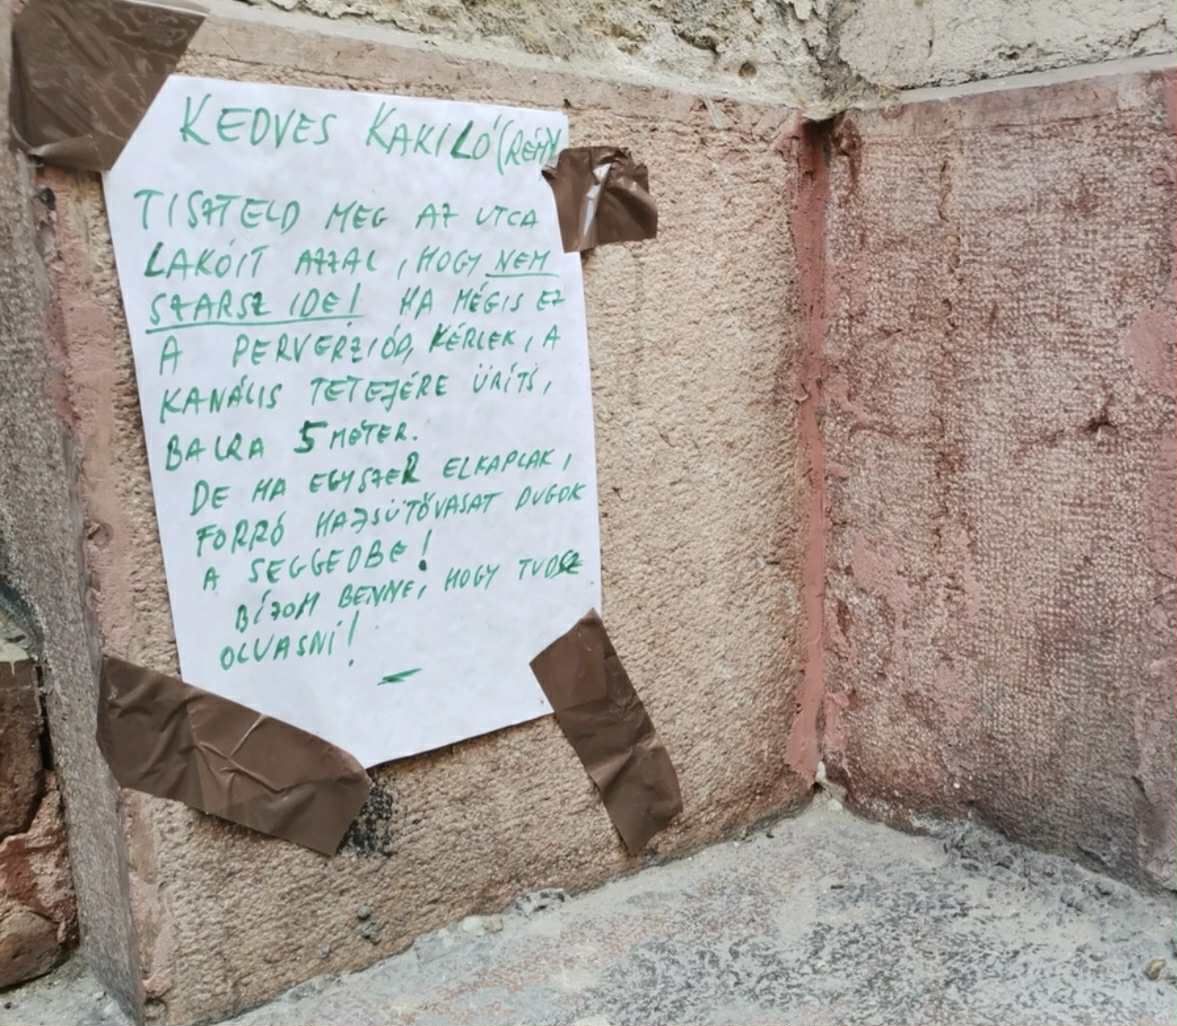 KEDVES KAKILÓ
TISZTELD MEG AZ UTCA
LAKÓIT AZZAL, HOGY NEM
SZARSZ IDE! HA MÉGIS EZ
A PERVERZIÓD, KÉRLEK, A
KANÁLIS TETEJÉRE ÜRÍTS,
BALRA 5 MÉTER.
DE HA EGYSZER ELKAPLAK,
FORRÓ HAJSÜTŐVASAT DUGOK
A SEGGEDBE!
BÍZOM BENNE, HOGY TUDSZ
OLVASNI!